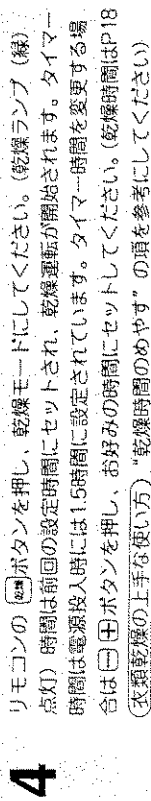 4
リモコンの 乾燥 ボタンを押し、乾燥モードにしてください。(乾燥ランプ(緑)
点灯)時間は前回の設定時間にセットされ、乾燥運転が開始されます。タイマー
時間は電源投入時には1.5時間に設定されています。タイマー時間を変更する場
合は⊟⊞ボタンを押し、お好みの時間にセットしてください。(乾燥時間はP18
(衣類乾燥の上手な使い方)“乾燥時間のめやす”の項を参考にしてください)